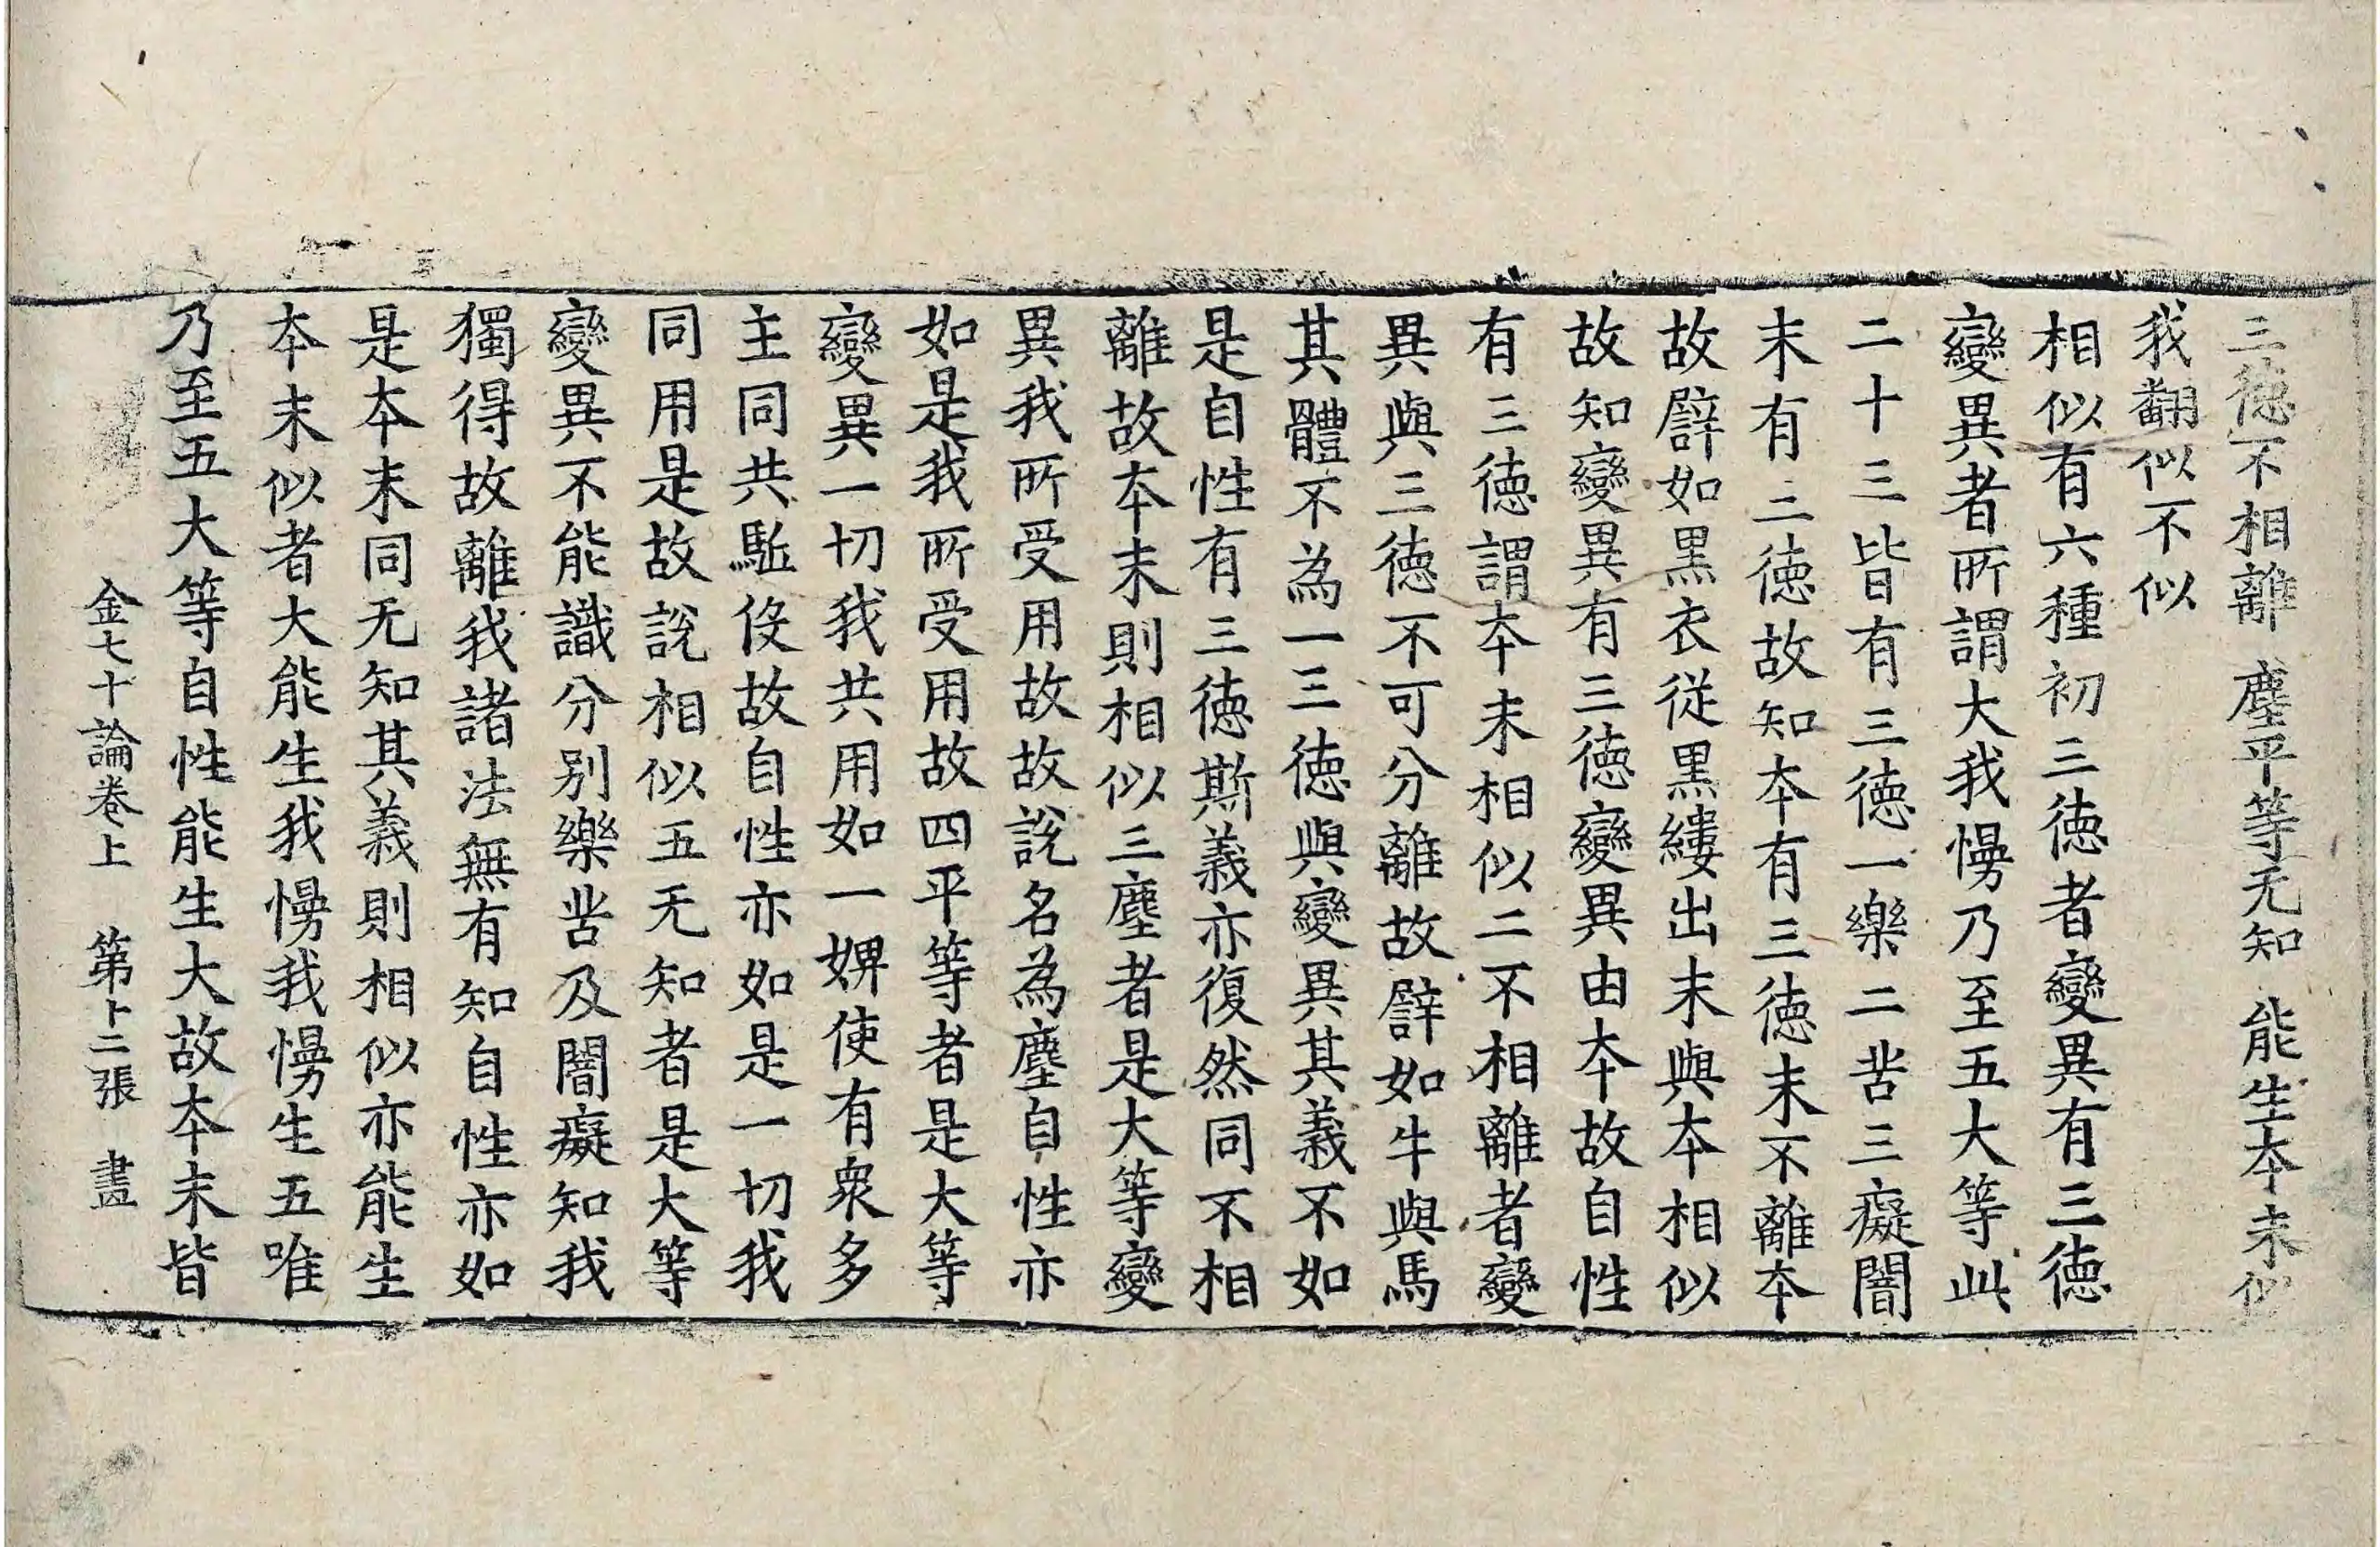 三徳不相離　塵平等无知　能生本末似
我翻似不似
相似有六種初三徳者變異有三徳
變異者所謂大我慢乃至五大等此
二十三皆有三徳一樂二苦三癡闇
末有三徳故知本有三徳末不離本
故譬如黒衣従黒縷出末與本相似
故知變異有三徳變異由本故自性
有三徳謂本末相似二不相離者變
異與三徳不可分離故譬如牛與馬
其體不為一三徳與變異其義不如
是自性有三徳斯義亦復然同不相
離故本末則相似三塵者是大等變
異我所受用故故說名為塵自性亦
如是我所受用故四平等者是大等
變異一切我共用如一婢使有衆多
主同共駈役故自性亦如是一切我
同用是故說相似五无知者是大等
變異不能識分別樂苦及闇癡知我
獨得故離我諸法無有知自性亦如
是本末同无知其義則相似亦能生
本末似者大能生我慢我慢生五唯
乃至五大等自性能生大故本末皆
金七十論卷上　第卜二張　畫